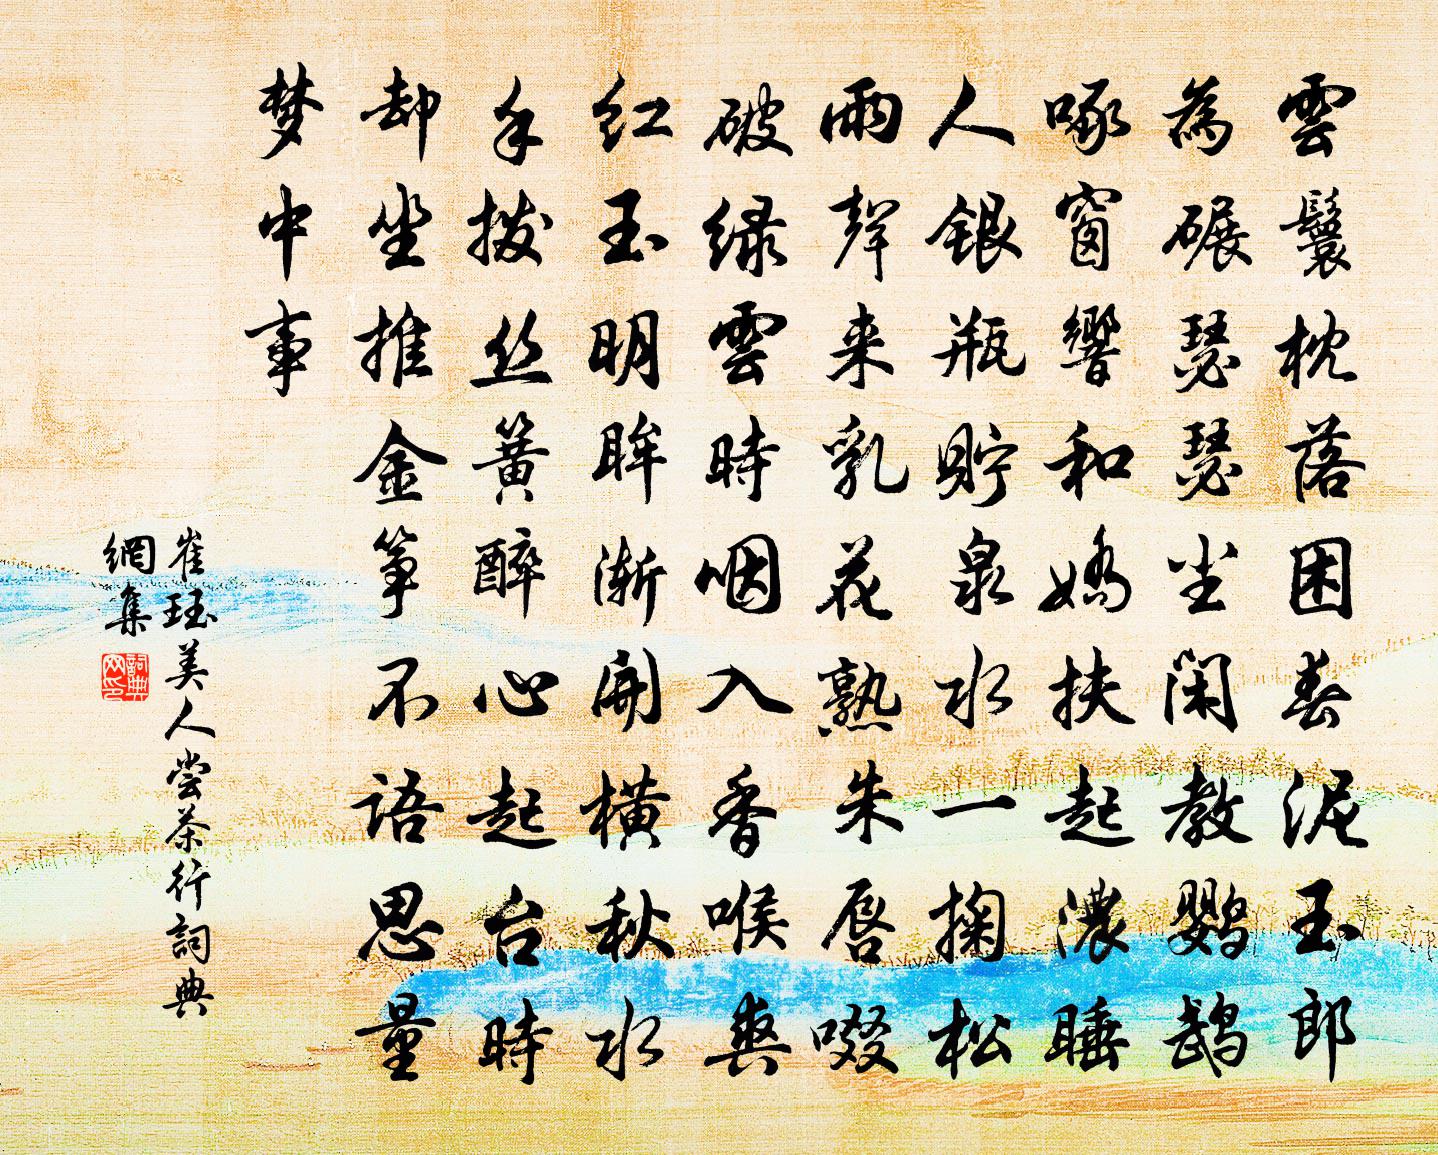 雲鬟枕落困春泥玉郎
為碾瑟瑟尘闲教鹦鹉
啄窗響和嬌扶起濃睡
人銀瓶貯泉水一掬松
雨聲来乳花熟朱唇啜
破绿雲時咽入香喉爽
红玉明眸渐開橫秋水
手拨丝簧醉心起台時
却坐推金箏不语思量
梦中事
崔珏美人尝茶行詞典
網集
詞典网印